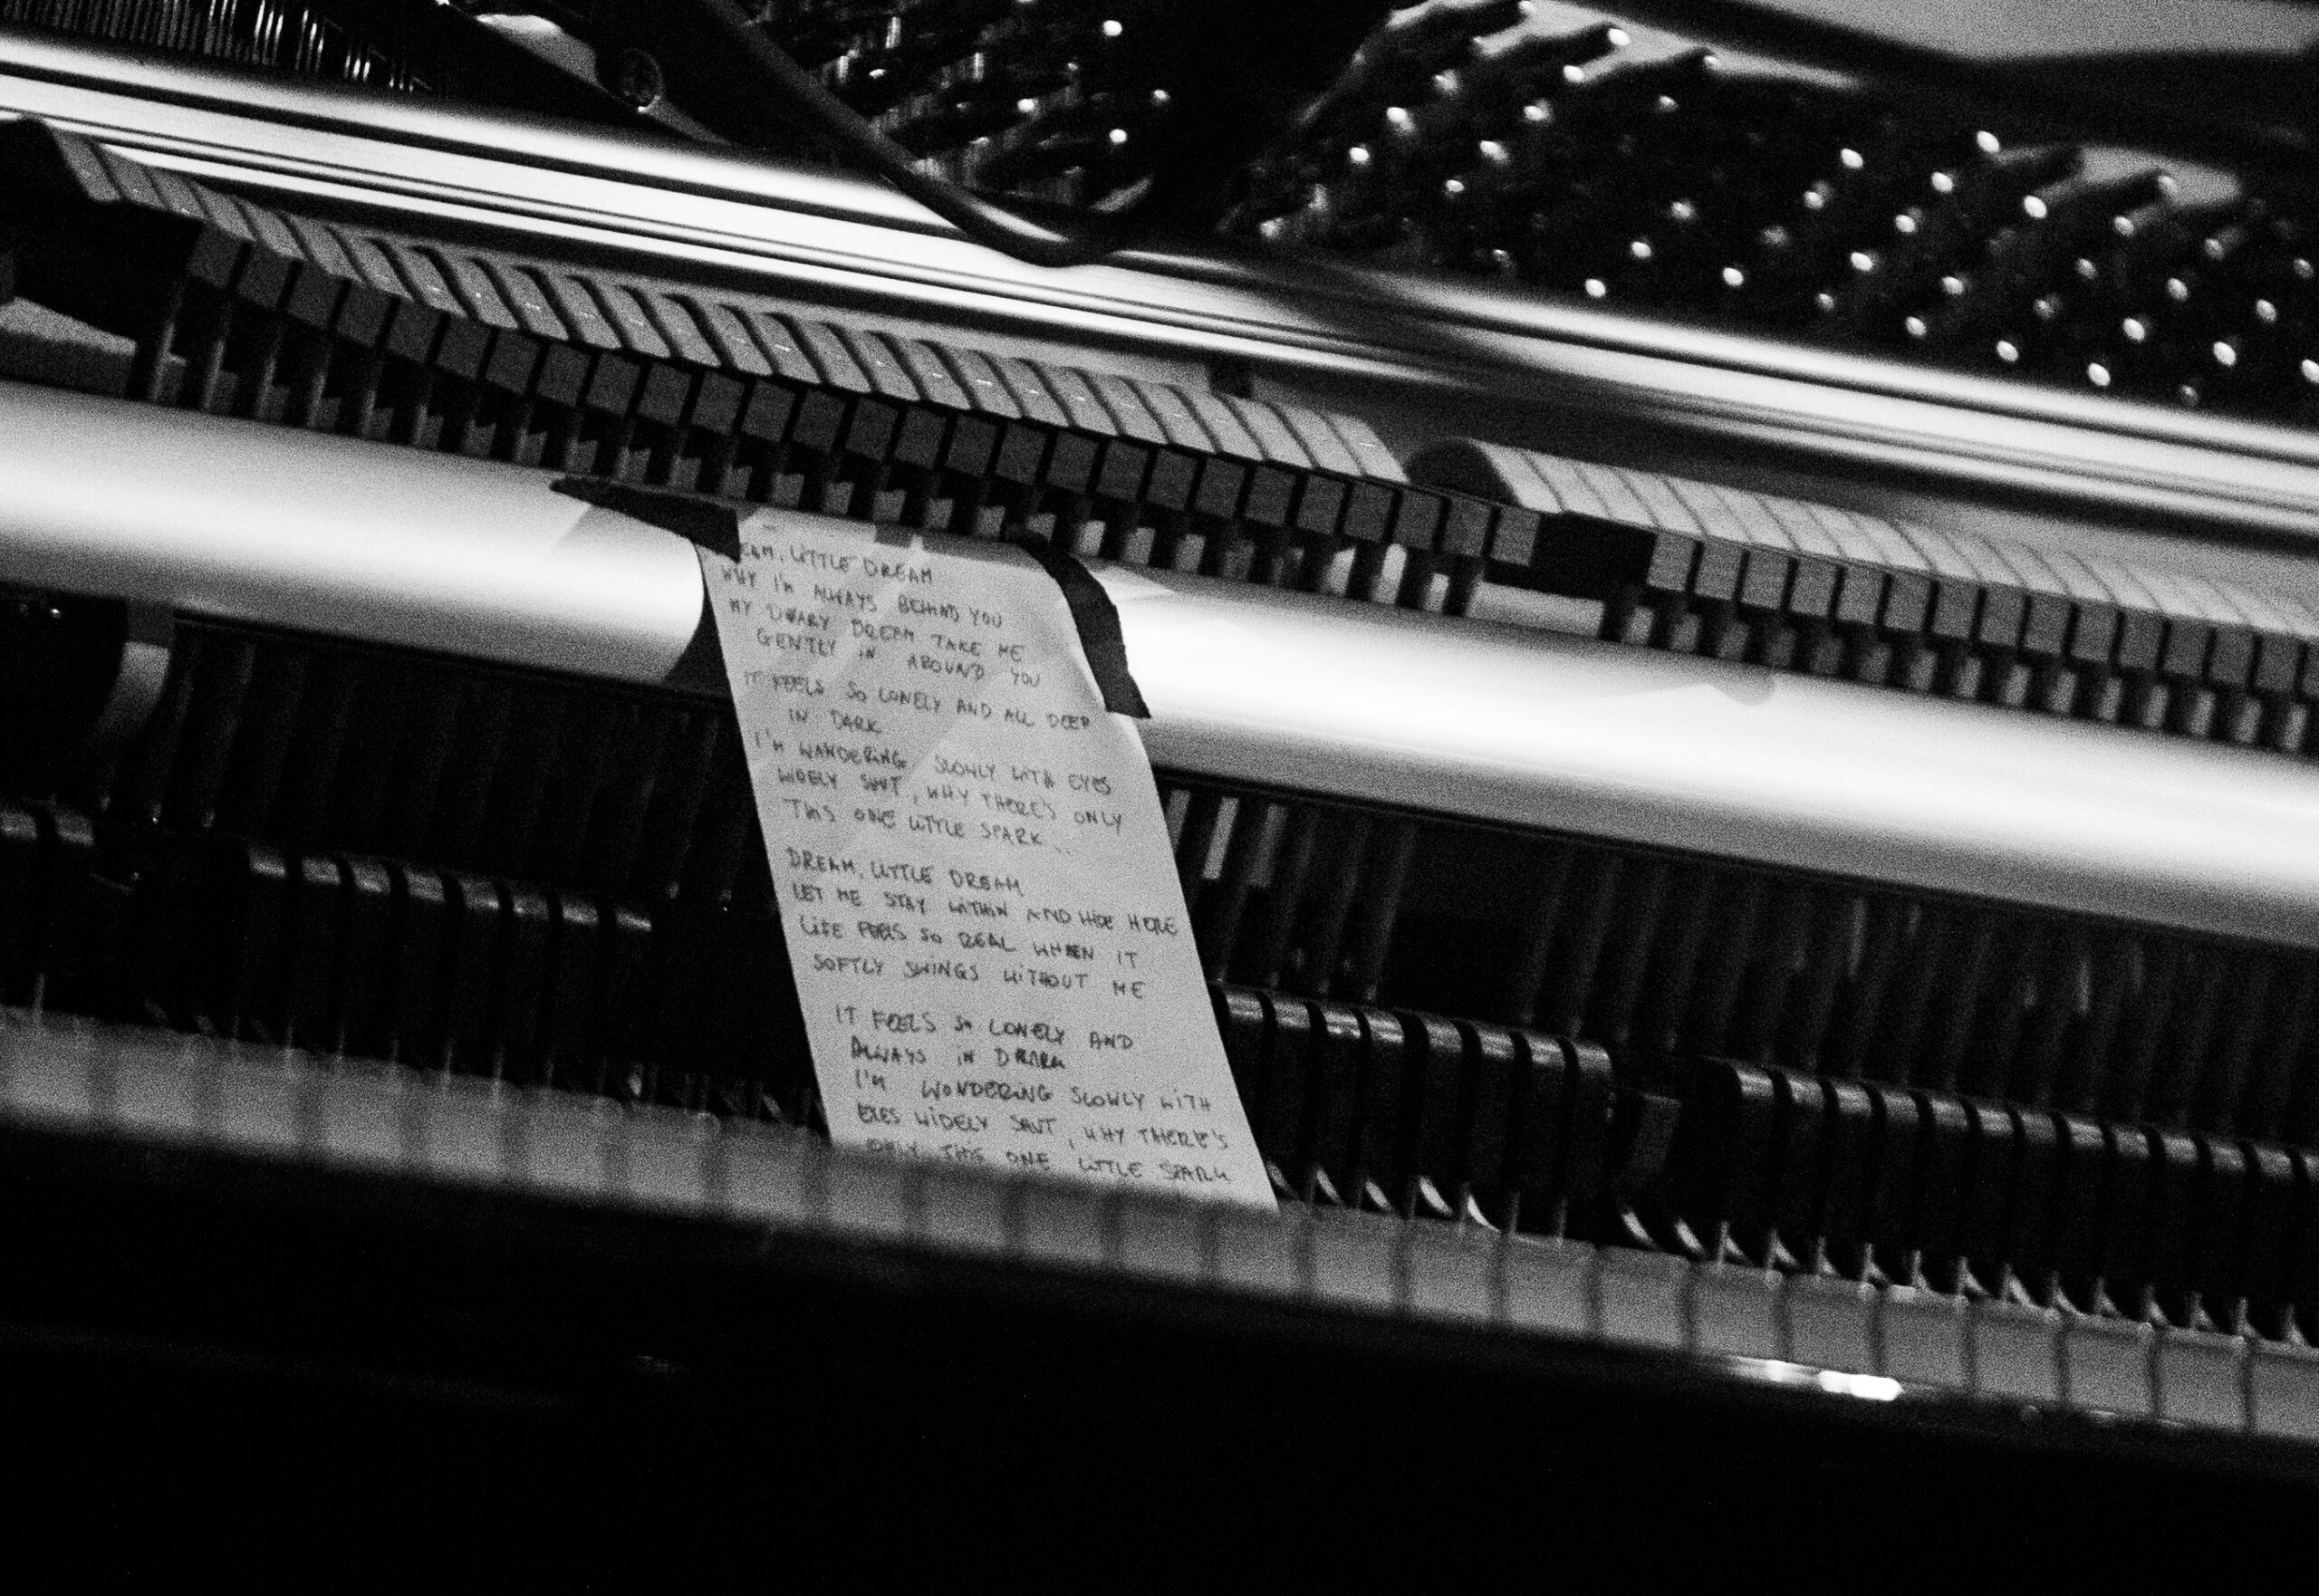 EAM, LITTLE DREAM
WHY I'M ALWAYS BEHIND YOU
MY DREAM TAKE ME
GENTLY IN AROUND YOU
IT FEELS SO LONELY AND ALL DEEP
IN DARK
I'M WANDERING SLOWLY WITH EYES
WIDELY SHUT, WHY THERE'S ONLY
THIS ONE LITTLE SPARK..
DREAM, LITTLE DREAM
LET ME STAY WITHIN AND HIDE HERE
LIFE FEELS SO REAL WHEN IT
SOFTLY SWINGS WITHOUT ME
IT FEELS SO LONELY AND
ALWAYS IN
I'M WONDERING SLOWLY WITH
EYES WIDELY SHUT, WHY THERE'S
ONLY THIS ONE LITTLE SPARK